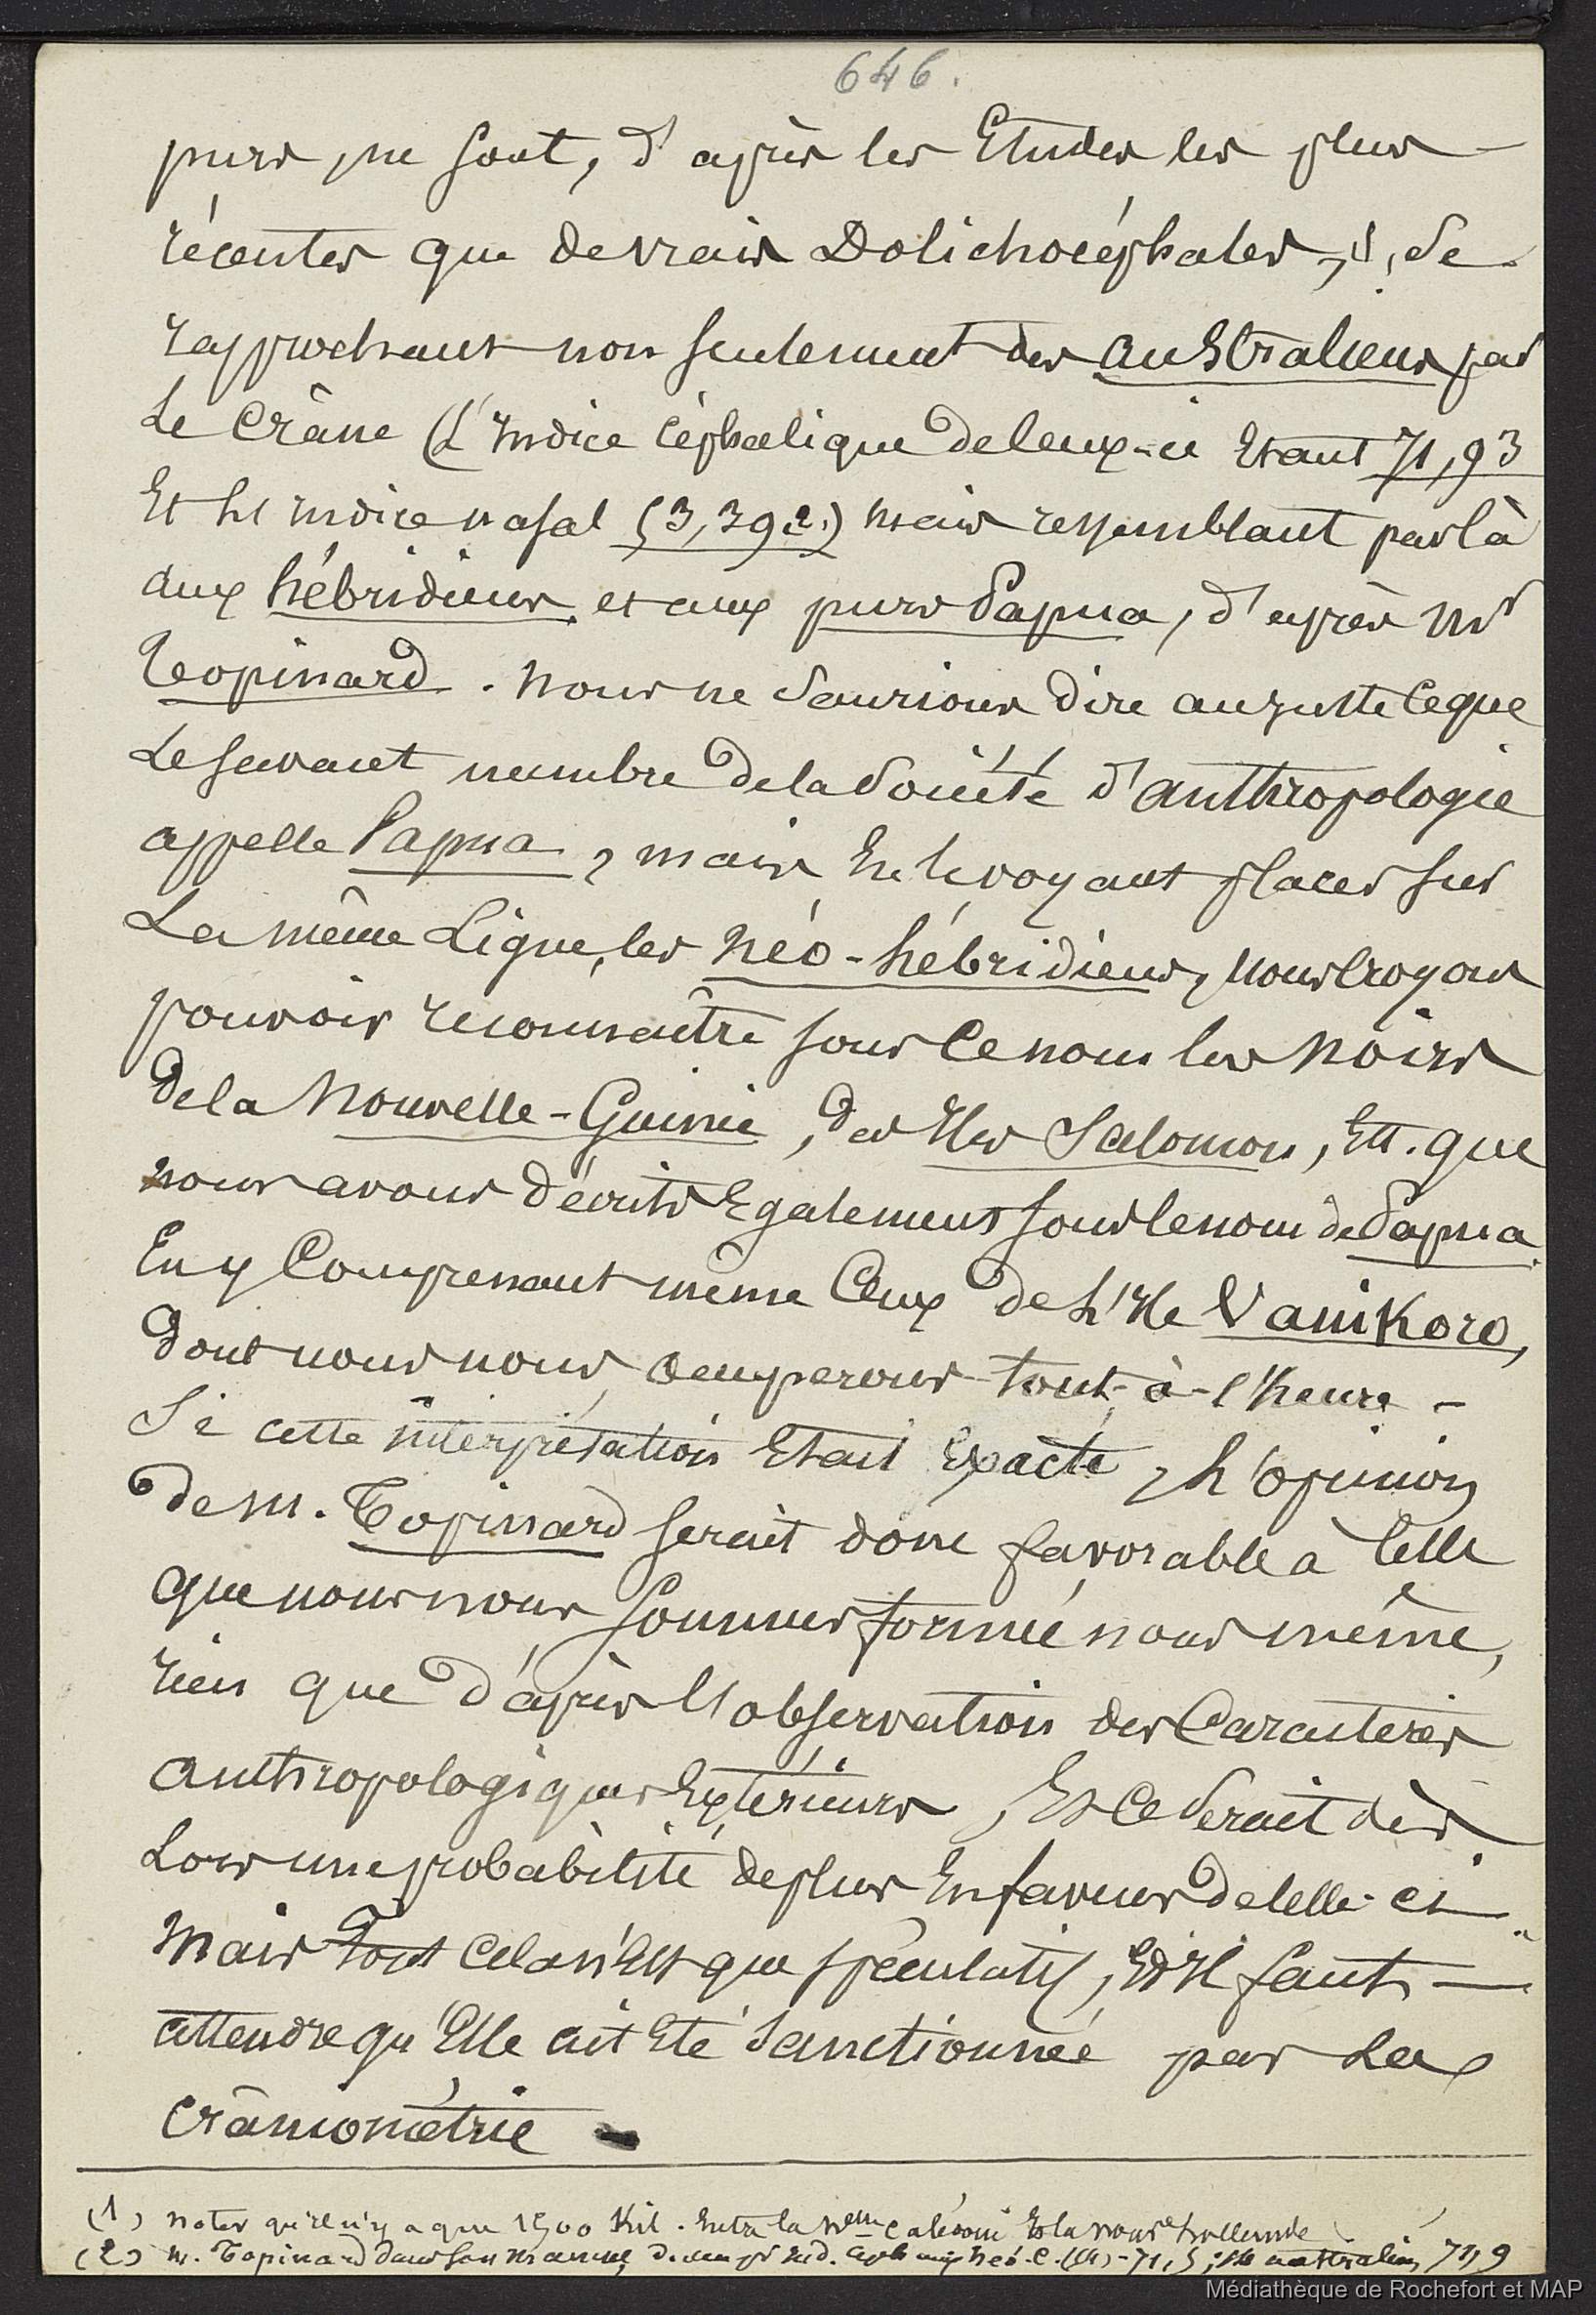 646.
purs, ne sont, d'après les Etudes les plus
récentes que de vrais Dolichocéphales, se
rapprochant non seulement des Australiens par
le crâne (L'Indice Céphalique de ceux-ci Etant 71,93
Et l'indice nasal 53,39 2.) mais ressemblant par là
aux hébridiens et aux purs Papua, d'après Mr
Topinard. Nous ne saurions dire au juste ce que
Le savant membre de la Société d'anthropologie
appelle Papua, mais En le voyant placer sur
La même Ligne, les Néo-hébridiens, nous croyons
pouvoir reconnaître sous ce nom les noirs
de la Nouvelle-Guinée, des Iles Salomon, Ett. que
nous avons décrits Egalement sous le nom de Papua
En y Comprenant même Ceux de L'Ile Vanikoro,
dont nous nous occuperons tout-à-l'heure -
Si cette interprétation Etait Exacte, L'opinion
de M. Topinard serait donc favorable à Celle
que nous nous sommes formée nous même,
rien que d'après l'observation des Caractères
Anthropologiques Extérieurs, Et Ce serait dès
Lors une probabilité de plus En faveur de Celle-ci
Mais tout Cela n'Est que spéculatif, Et Il faut -
attendre qu'Elle ait Eté Sanctionnée par La
crâniométrie -
(1) noter qu'il n'y a que 1500 Kil. Entre la Nelle Calédonie Et la nouve hollande
(2) M. Topinard dans son manuel, ind. aux Néo-C. 71,9
Médiathèque de Rochefort et MAP